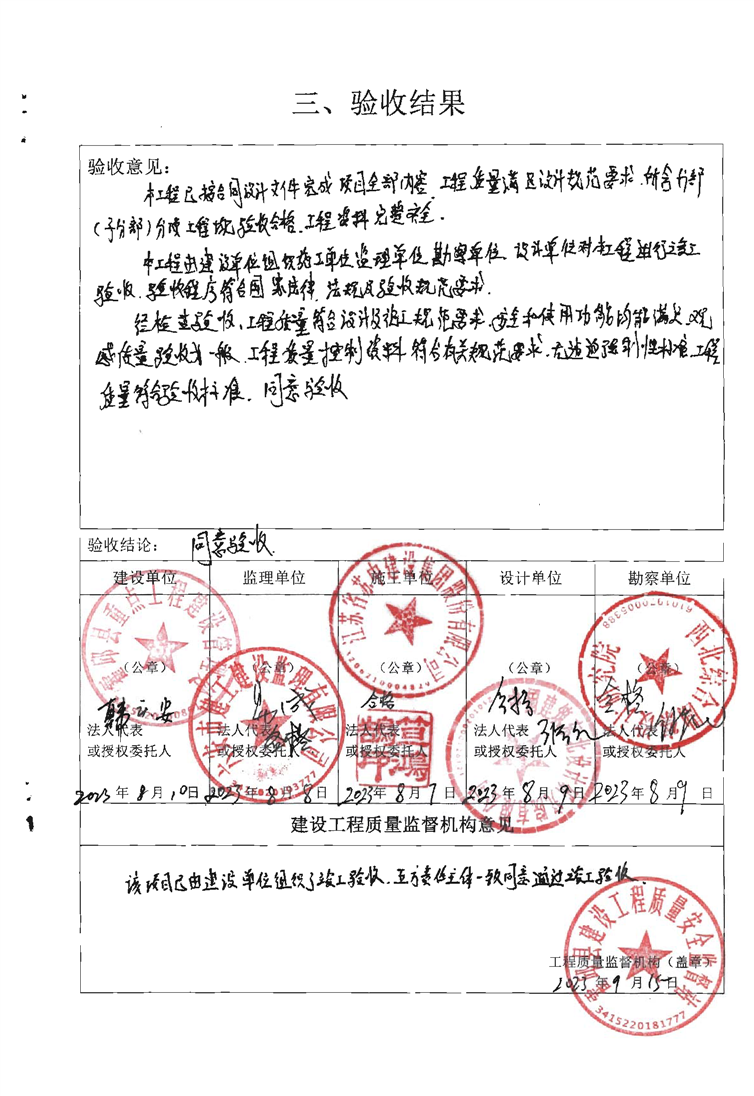 三、验收结果
验收意见：
本工程已按合同设计文件完成项目全部内容，工程质量满足设计规范要求，所含分部
（子分部）分项工程均验收合格，工程资料完整安全。
本工程由建设单位组织施工单位监理单位勘察单位、设计单位对本工程进行竣工
验收，验收程序符合国家法律、法规及验收规范要求。
经检查验收，工程质量符合设计及施工规范要求，安全和使用功能均能满足，观
感质量验收为一般，工程质量控制资料符合有关规范要求，无违反强制性标准，工程
质量符合验收标准，同意验收
验收结论：同意验收
建设单位 监理单位 施工单位 设计单位 勘察单位
（公章） （公章） （公章） （公章） （公章）
合格 合格 合格 合格
法人代表 法人代表 法人代表 法人代表 法人代表
或授权委托人 或授权委托人 或授权委托人 或授权委托人 或授权委托人
2023年8月10日 2023年8月8日 2023年8月7日 2023年8月9日 2023年8月9日
建设工程质量监督机构意见
该项目已由建设单位组织了竣工验收，五方责任主体一致同意通过竣工验收
工程质量监督机构（盖章）
2023年9月15日
县建设工程质量安全监督站
3415220181777
县重点工程建设管理
建设监理有限公司
江苏省苏中建设集团股份有限公司
西北综合勘察
研究院
6101970005388